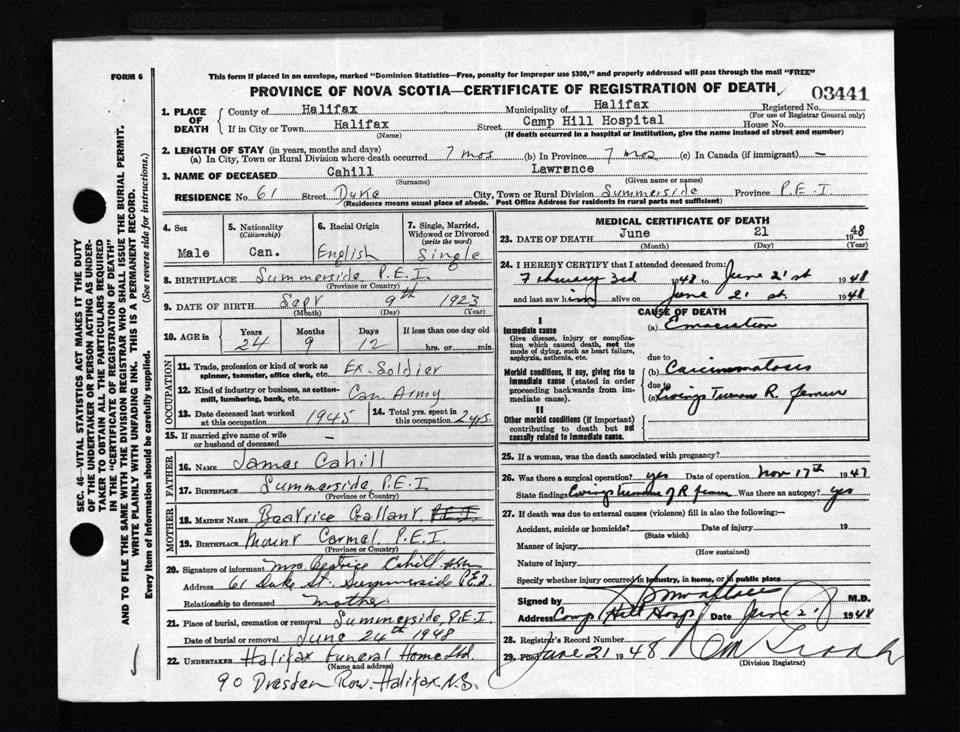 FORM 6
This form if placed in an envelope, marked "Dominion Statistics—Free, penalty for improper use $300," and properly addressed will pass through the mail "FREE"
PROVINCE OF NOVA SCOTIA—CERTIFICATE OF REGISTRATION OF DEATH 03441
1. PLACE OF DEATH
County of Halifax Municipality of Halifax Registered No.
(For use of Registrar General only)
If in City or Town Halifax Street Camp Hill Hospital House No.
(Name) (If death occurred in a hospital or institution, give the name instead of street and number)
2. LENGTH OF STAY (in years, months and days)
(a) In City, Town or Rural Division where death occurred 7 mos (b) In Province 7 mos (c) In Canada (if immigrant) —
3. NAME OF DECEASED Cahill Lawrence
(Surname) (Given name or names)
RESIDENCE No. 61 Street Duke City, Town or Rural Division Summerside Province P.E.I
(Residence means usual place of abode. Post Office Address for residents in rural parts not sufficient)
4. Sex Male
5. Nationality (Citizenship) Can.
6. Racial Origin English
7. Single, Married, Widowed or Divorced (write the word) Single
8. BIRTHPLACE Summerside P.E.I
(Province or Country)
9. DATE OF BIRTH Sept 9th 1923
(Month) (Day) (Year)
10. AGE in Years Months Days If less than one day old
24 9 12 hrs. or min.
OCCUPATION
11. Trade, profession or kind of work as spinner, teamster, office clerk, etc. Ex-Soldier
12. Kind of industry or business, as cotton-mill, lumbering, bank, etc. Can Army
13. Date deceased last worked at this occupation 1945 14. Total yrs. spent in this occupation 2 yrs.
15. If married give name of wife or husband of deceased —
FATHER
16. NAME James Cahill
17. BIRTHPLACE Summerside P.E.I
(Province or Country)
MOTHER
18. MAIDEN NAME Beatrice Gallant P.E.I
19. BIRTHPLACE Mount Carmel, P.E.I
(Province or Country)
20. Signature of informant Mrs Beatrice Cahill
Address 61 Duke St. Summerside P.E.I.
Relationship to deceased mother
21. Place of burial, cremation or removal Summerside, P.E.I
Date of burial or removal June 24th 1948
22. UNDERTAKER Halifax Funeral Home Ltd.
(Name and address)
90 Dresden Row. Halifax, N.S.
MEDICAL CERTIFICATE OF DEATH
23. DATE OF DEATH June 21 1948
(Month) (Day) (Year)
24. I HEREBY CERTIFY that I attended deceased from:
3rd 1948 to June 21st 1948
and last saw him alive on June 21st 1948
CAUSE OF DEATH
I
Immediate cause
Give disease, injury or complication which caused death, not the mode of dying, such as heart failure, asphyxia, asthenia, etc.
(a) Emaciation
due to
Morbid conditions, if any, giving rise to immediate cause (stated in order proceeding backwards from immediate cause).
(b) Carcinomatosis
due to
(c) Ewings Tumour R. femur
II
Other morbid conditions (if important) contributing to death but not causally related to immediate cause.
25. If a woman, was the death associated with pregnancy?
26. Was there a surgical operation? yes Date of operation Nov 17th 1947
State findings Ewings tumour of R femur Was there an autopsy? yes
27. If death was due to external causes (violence) fill in also the following:—
Accident, suicide or homicide? Date of injury 19
(State which)
Manner of injury
(How sustained)
Nature of injury
Specify whether injury occurred in industry, in home, or in public place
Signed by M.D.
Address Camp Hill Hosp Date June 21 1948
28. Registrar's Record Number
29. Filed June 21 1948
(Division Registrar)
SEC. 46—VITAL STATISTICS ACT MAKES IT THE DUTY
OF THE UNDERTAKER OR PERSON ACTING AS UNDER-
TAKER TO OBTAIN ALL THE PARTICULARS REQUIRED
IN THE "CERTIFICATE OF REGISTRATION OF DEATH"
AND TO FILE THE SAME WITH THE DIVISION REGISTRAR WHO SHALL ISSUE THE BURIAL PERMIT.
WRITE PLAINLY WITH UNFADING INK. THIS IS A PERMANENT RECORD.
Every item of information should be carefully supplied. (See reverse side for instructions.)